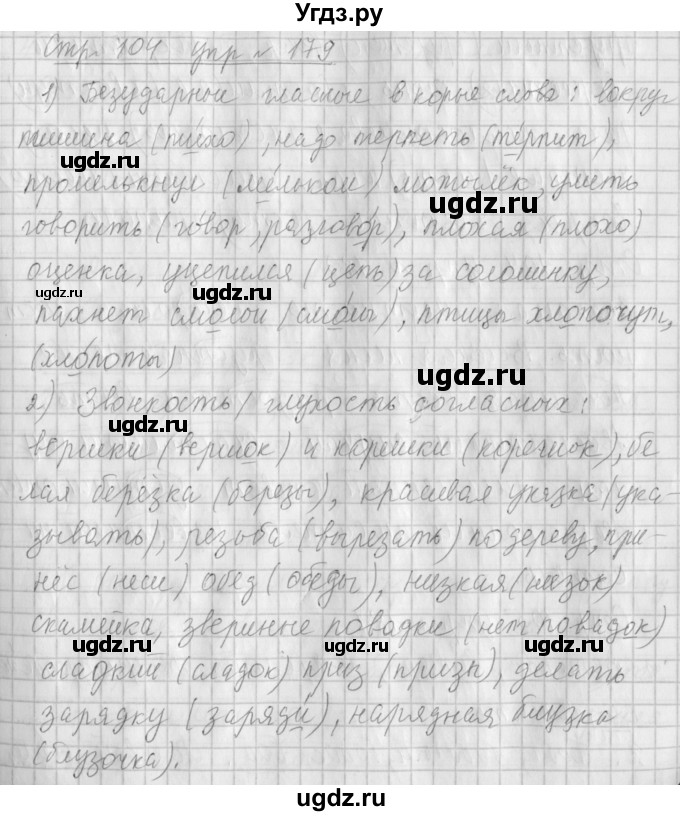 Угдз.ру
Стр 104 упр № 179
1) Безударные гласные в корне слова: вокруг
тишина (тихо), надо терпеть (терпит),
ugdz.ru
промелькнул (мельком) мотылёк, уметь
ugdz.ru
говорить (говор, разговор), плохая (плохо)
оценка, уцепился (цепь) за соломинку,
ugdz.ru ugdz.ru ugdz.ru
пахнет смолой (смолы), птицы хлопочут,
(хлопоты)
ugdz.ru
2) Звонкость/глухость согласных:
ugdz.ru
вершки (вершок) и корешки (корешок), бе
лая берёзка (березы), красивая указка (ука
зывать), резьба (вырезать) по дереву, при-
нёс (неси) обед (обеды), низкая (низок)
скамейка, звериные повадки (нет повадок)
ugdz.ru ugdz.ru ugdz.ru
сладкий (сладок) приз (призы), делать
зарядку (заряди), нарядная блузка
ugdz.ru ugdz.ru
(блузочка).
ugdz.ru